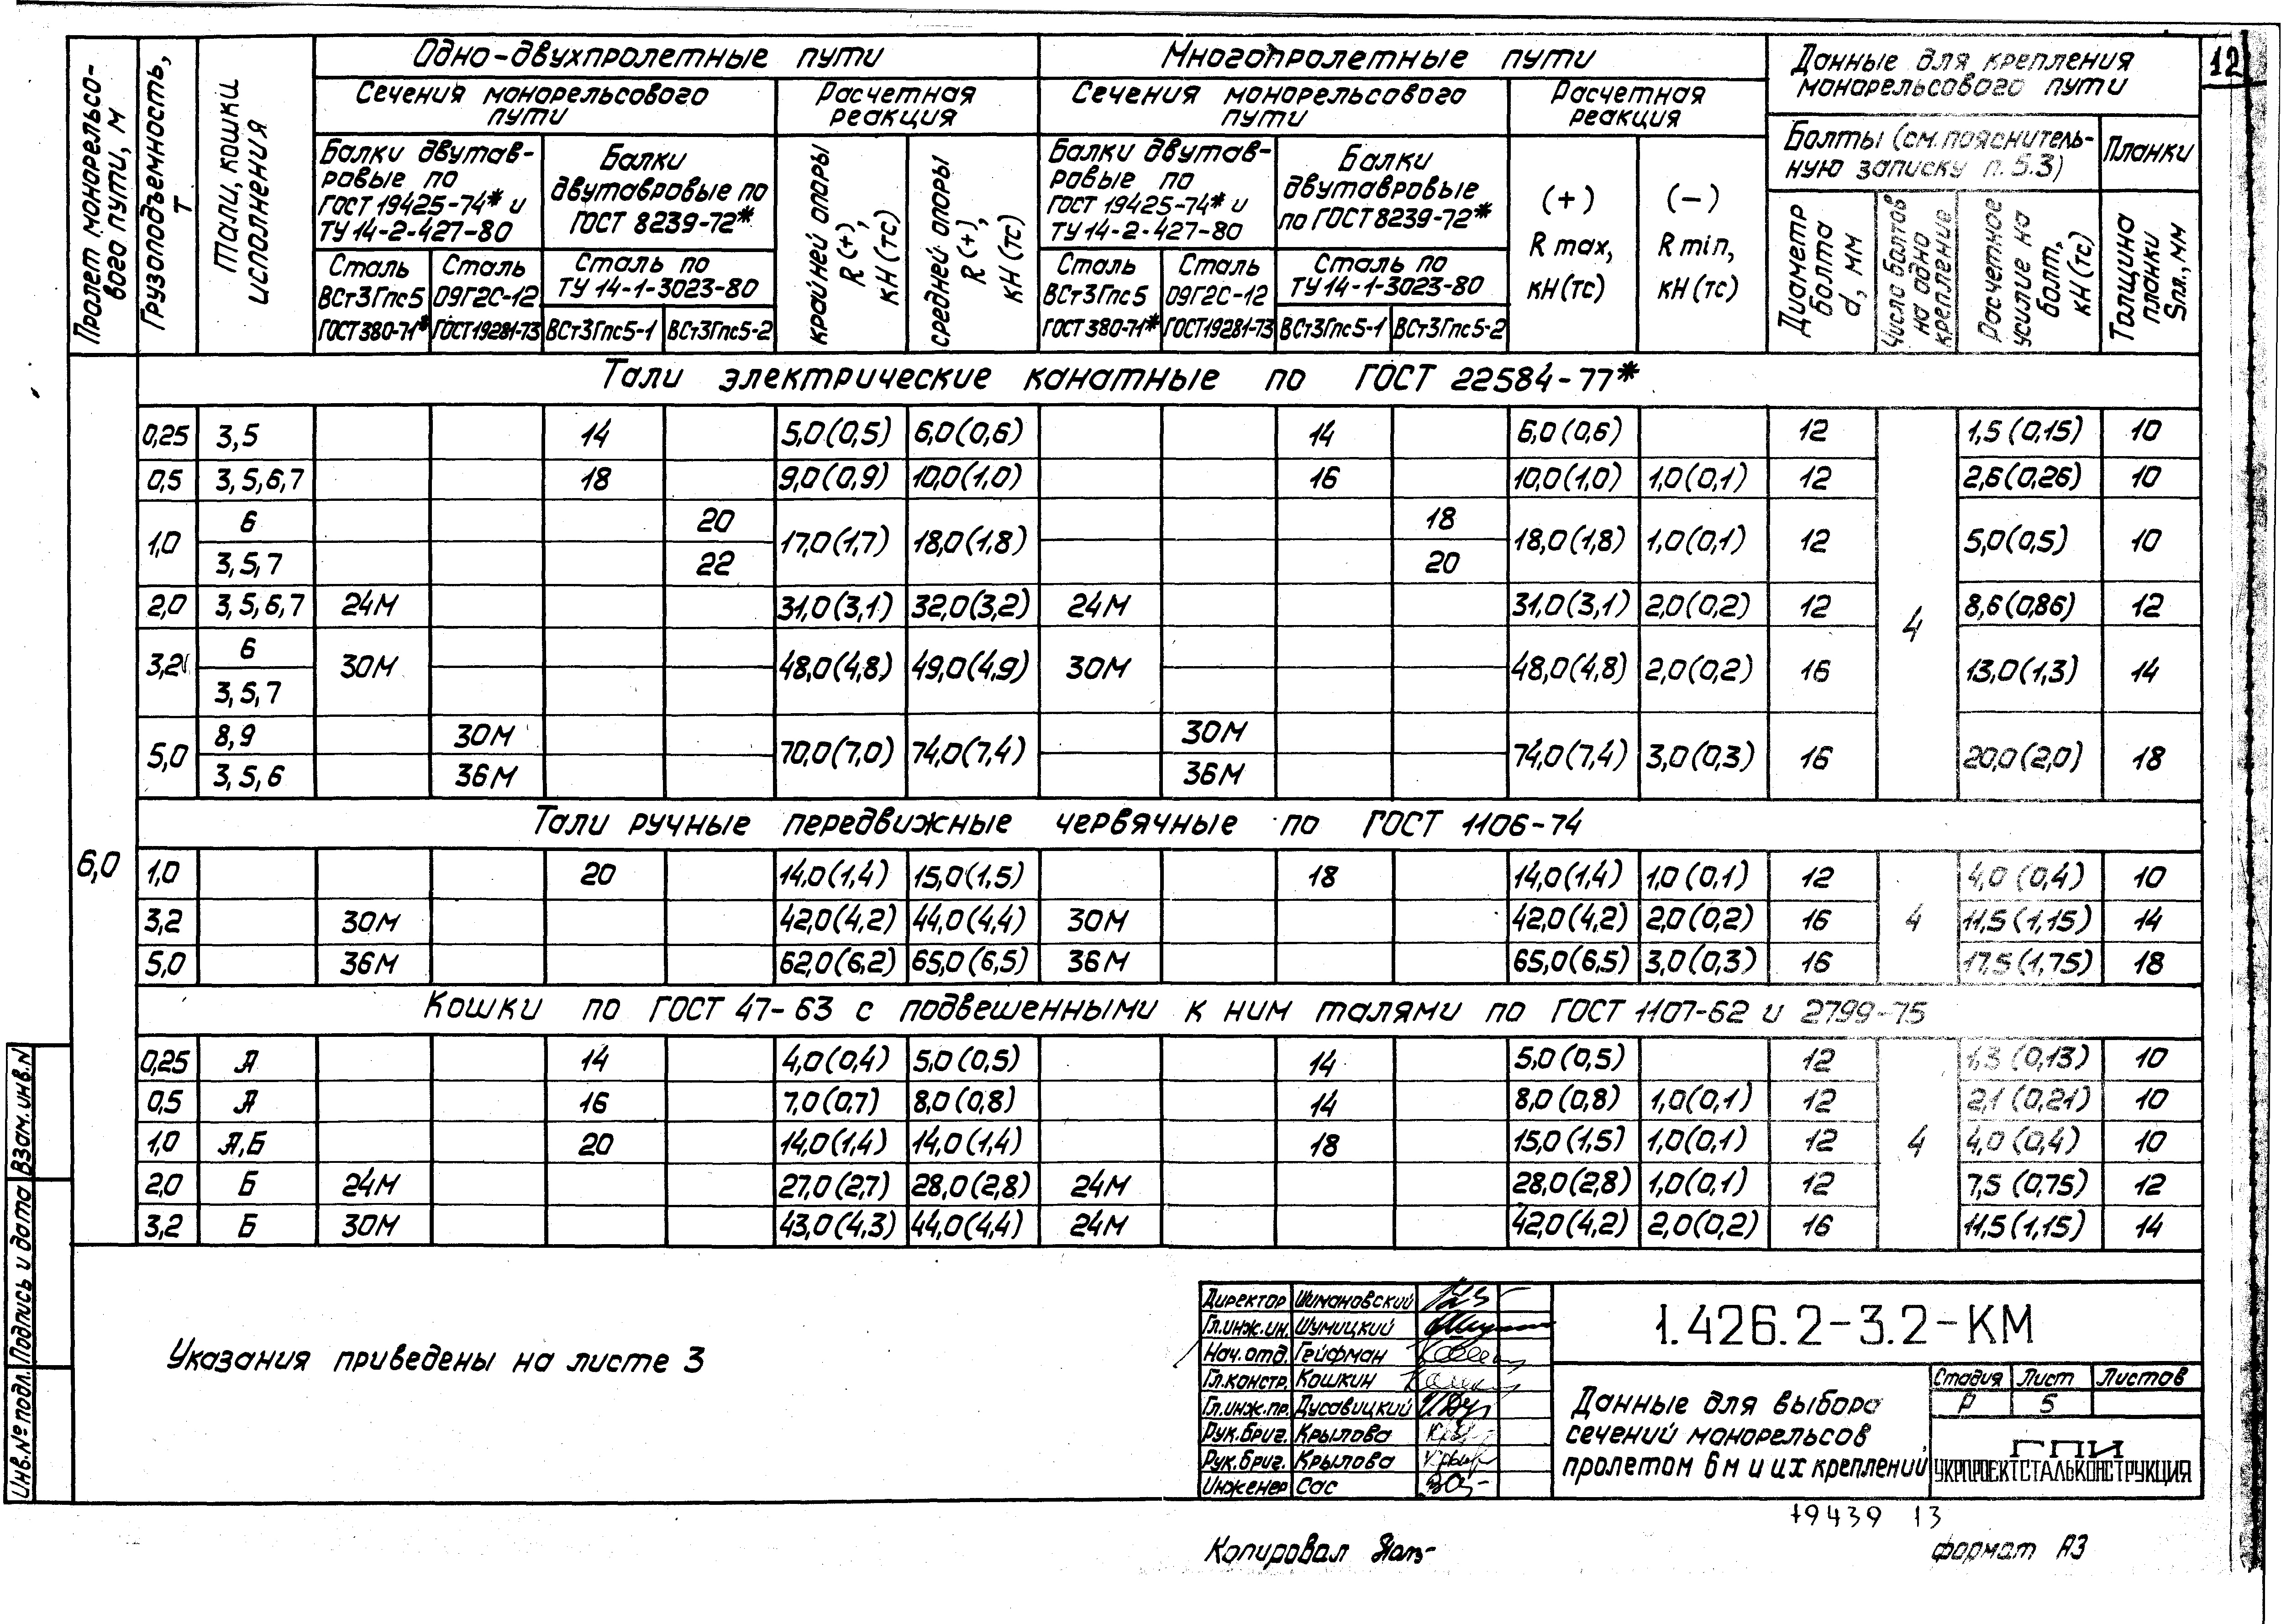 12
Пролет монорельсо-
вого пути, м
Грузоподъемность,
т
Тали, кошки
исполнения
Одно-двухпролетные пути
Многопролетные пути
Данные для крепления
монорельсового пути
Сечения монорельсового
пути
Расчетная
реакция
Сечения монорельсового
пути
Расчетная
реакция
Болты (см. пояснитель-
ную записку п. 5.3)
Планки
Балки двутав-
ровые по
ГОСТ 19425-74* и
ТУ 14-2-427-80
Балки
двутавровые по
ГОСТ 8239-72*
крайней опоры
R (+),
кН (тс)
средней опоры
R (+),
кН (тс)
Балки двутав-
ровые по
ГОСТ 19425-74* и
ТУ 14-2-427-80
Балки
двутавровые
по ГОСТ 8239-72*
(+)
R max,
кН (тс)
(-)
R min,
кН (тс)
Диаметр
болта
d, мм
Число болтов
на одно
крепление
Расчетное
усилие на
болт,
кН (тс)
Толщина
планки
Sпл., мм
Сталь
ВСт3Гпс5
ГОСТ 380-71*
Сталь
09Г2С-12
ГОСТ 19281-73
Сталь по
ТУ 14-1-3023-80
ВСт3Гпс5-1
ВСт3Гпс5-2
Сталь
ВСт3Гпс5
ГОСТ 380-71*
Сталь
09Г2С-12
ГОСТ 19281-73
Сталь по
ТУ 14-1-3023-80
ВСт3Гпс5-1
ВСт3Гпс5-2
6,0
Тали электрические канатные по ГОСТ 22584-77*
0,25 3,5 14 5,0(0,5) 6,0(0,6) 14 6,0(0,6) 12 1,5(0,15) 10
0,5 3,5,6,7 18 9,0(0,9) 10,0(1,0) 16 10,0(1,0) 1,0(0,1) 12 2,6(0,26) 10
6 20 18
1,0 17,0(1,7) 18,0(1,8) 18,0(1,8) 1,0(0,1) 12 5,0(0,5) 10
3,5,7 22 20
2,0 3,5,6,7 24М 31,0(3,1) 32,0(3,2) 24М 31,0(3,1) 2,0(0,2) 12 4 8,6(0,86) 12
6
3,2 30М 48,0(4,8) 49,0(4,9) 30М 48,0(4,8) 2,0(0,2) 16 13,0(1,3) 14
3,5,7
8,9 30М 30М
5,0 70,0(7,0) 74,0(7,4) 74,0(7,4) 3,0(0,3) 16 20,0(2,0) 18
3,5,6 36М 36М
Тали ручные передвижные червячные по ГОСТ 1106-74
1,0 20 14,0(1,4) 15,0(1,5) 18 14,0(1,4) 1,0(0,1) 12 4,0(0,4) 10
3,2 30М 42,0(4,2) 44,0(4,4) 30М 42,0(4,2) 2,0(0,2) 16 4 11,5(1,15) 14
5,0 36М 62,0(6,2) 65,0(6,5) 36М 65,0(6,5) 3,0(0,3) 16 17,5(1,75) 18
Кошки по ГОСТ 47-63 с подвешенными к ним талями по ГОСТ 1107-62 и 2799-75
0,25 А 14 4,0(0,4) 5,0(0,5) 14 5,0(0,5) 12 1,3(0,13) 10
0,5 А 16 7,0(0,7) 8,0(0,8) 14 8,0(0,8) 1,0(0,1) 12 2,1(0,21) 10
1,0 А,Б 20 14,0(1,4) 14,0(1,4) 18 15,0(1,5) 1,0(0,1) 12 4 4,0(0,4) 10
2,0 Б 24М 27,0(2,7) 28,0(2,8) 24М 28,0(2,8) 1,0(0,1) 12 7,5(0,75) 12
3,2 Б 30М 43,0(4,3) 44,0(4,4) 24М 42,0(4,2) 2,0(0,2) 16 11,5(1,15) 14
Указания приведены на листе 3
Инв.№ подл. Подпись и дата Взам.инв.N
Директор Шимановский
Гл.инж.ин. Шумицкий
Нач.отд. Гейфман
Гл.констр. Кошкин
Гл.инж.пр. Дусавицкий
Рук.бриг. Крылова
Рук.бриг. Крылова
Инженер Сас
1.426.2-3.2-КМ
Данные для выбора
сечений монорельсов
пролетом 6м и их креплений
Стадия Лист Листов
Р 5
ГПИ
УКРПРОЕКТСТАЛЬКОНСТРУКЦИЯ
19439 13
Копировал
формат А3